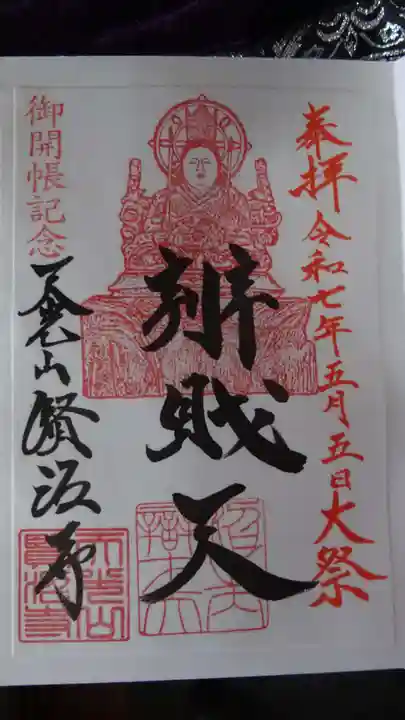 奉拝 令和七年五月五日大祭
辨財天
御開帳記念
山賢沼寺